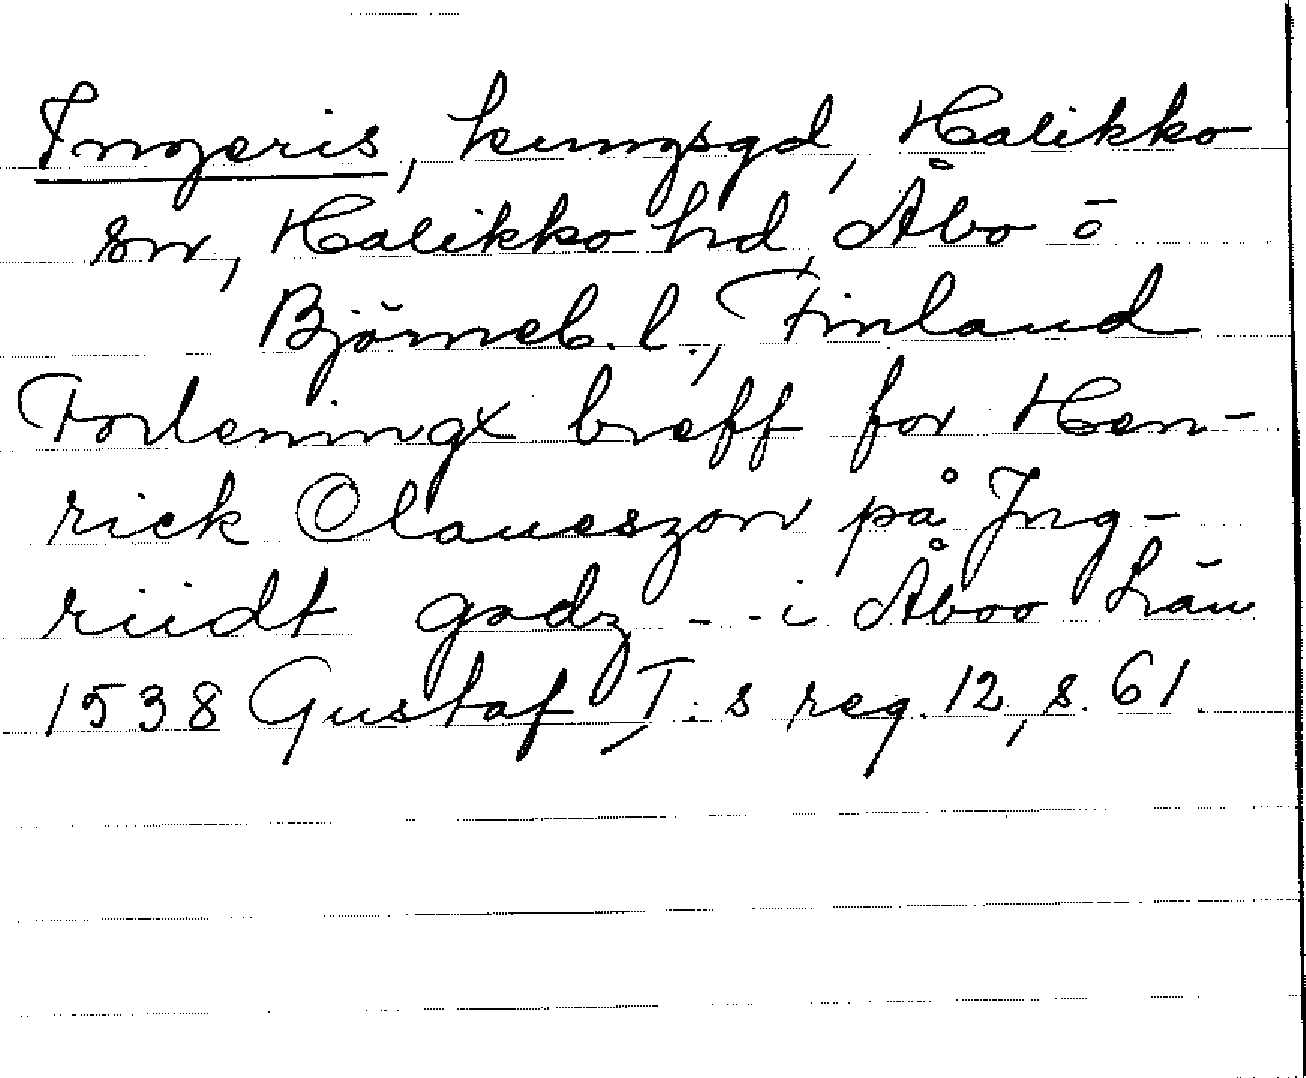 Ingeris, kungsgd, Halikko
sn, Halikko hd, Åbo o
Björneb. l., Finland
Forleningx breff for Hen-
rick Claueszon på Jng-
riidt godz - - i Åboo Län
1538 Gustaf I:s reg. 12, s. 61